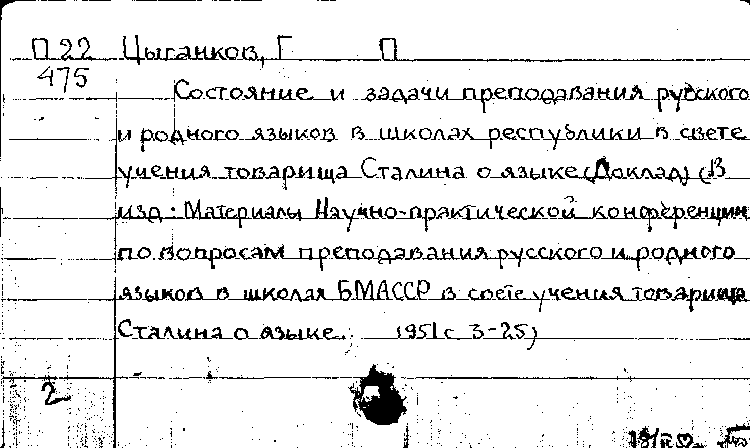 П 22 Цыганков, Г П
475
Состояние и задачи преподавания русского
и родного языков в школах республики в свете
учения товарища Сталина о языке (Доклад) (В
изд. Материалы Научно-практической конференции
по вопросам преподавания русского и родного
языков в школах БМАССР в свете учения товарища
Сталина о языке. 1951 с 3-25)
2